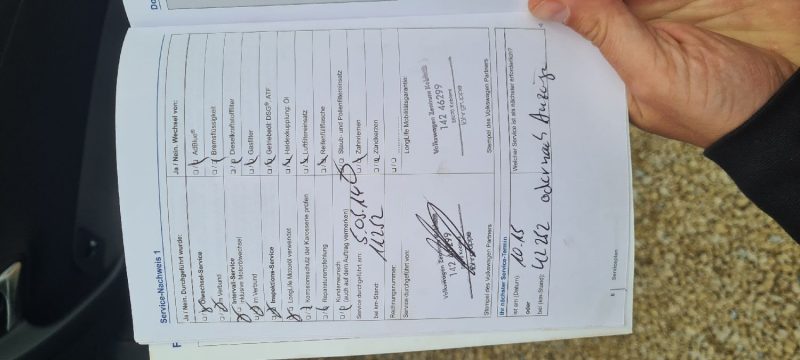 Service-Nachweis 1
Ja / Nein. Durchgeführt wurde:
Ölwechsel-Service
im Verbund
Intervall-Service
inklusive Motorölwechsel
im Verbund
Inspektions-Service
LongLife Motoröl verwendet
Korrosionsschutz der Karosserie prüfen
Reparaturempfehlung
Kundenwunsch
(auch auf dem Auftrag vermerken)
Service durchgeführt am:
5.05.14
bei km-Stand:
11252
Rechnungsnummer:
Service durchgeführt von:
Volkswagen Zentrum
142 46299
Stempel des Volkswagen Partners
Ja / Nein. Wechsel von:
AdBlue®
Bremsflüssigkeit
Dieselkraftstofffilter
Gasfilter
Getriebeöl: DSG®, ATF
Haldexkupplung: Öl
Luftfiltereinsatz
Reifenfüllflasche
Staub- und Pollenfiltereinsatz
Zahnriemen
Zündkerzen
LongLife Mobilitätsgarantie:
Volkswagen Zentrum Koblenz
142 46299
56070 Koblenz
Löhrgruppe
Stempel des Volkswagen Partners
Ihr nächster Service-Termin
ist am (Datum):
10.15
oder
bei (km-Stand):
41252 oder nach Anzeige
Welcher Service ist als nächster erforderlich?
6
Servicedaten